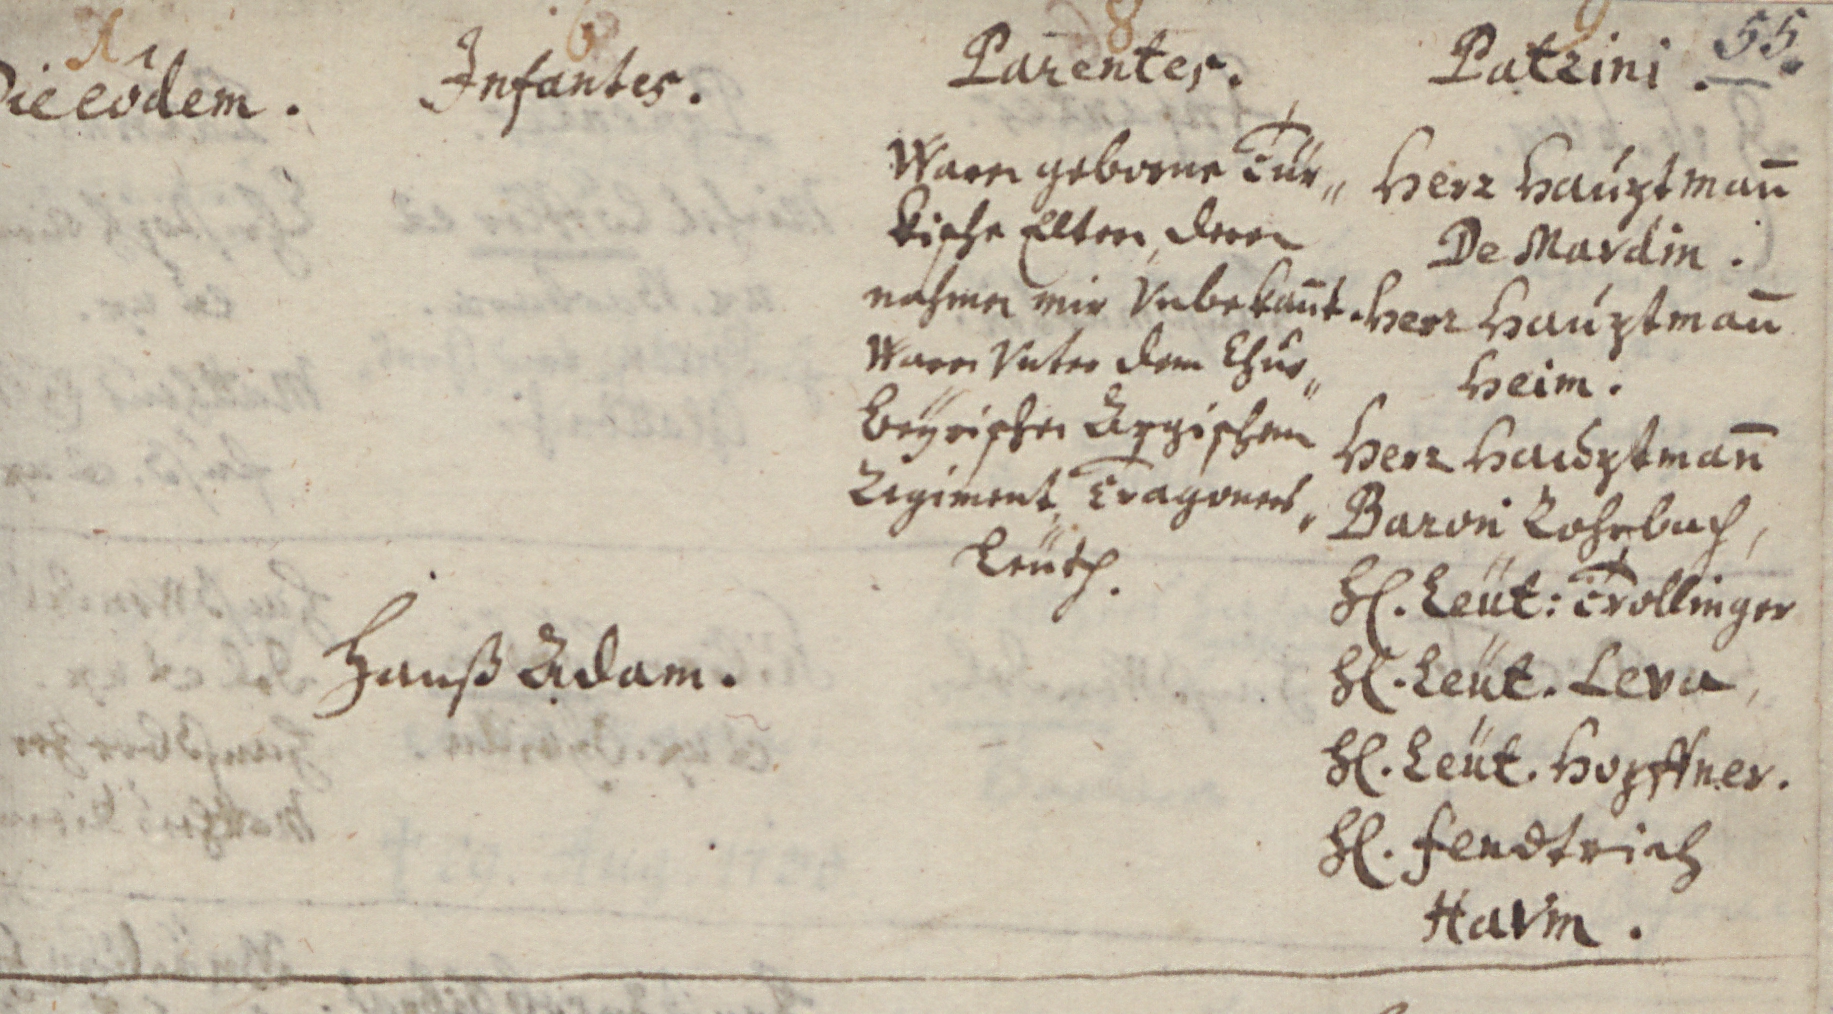 Die eodem.
Infantes.
Parentes.
Patrini.
55.
Waren geborne Tür„
kische Eltern, deren
nahmen mir Vnbekañt.
Waren Vnter dem Chur„
Beÿrischen Regiment, Tragoners„
Leüth.
Hanß Adam.
Herr Hauptmañ
De Mardin.
Herr Hauptmañ
Heim.
Herr Hauptmañ
Baron Rohrbach,
H. Leüt: Trollinger
H. Leüt. Leva,
H. Leüt. Hopffner.
H. Fendtrich